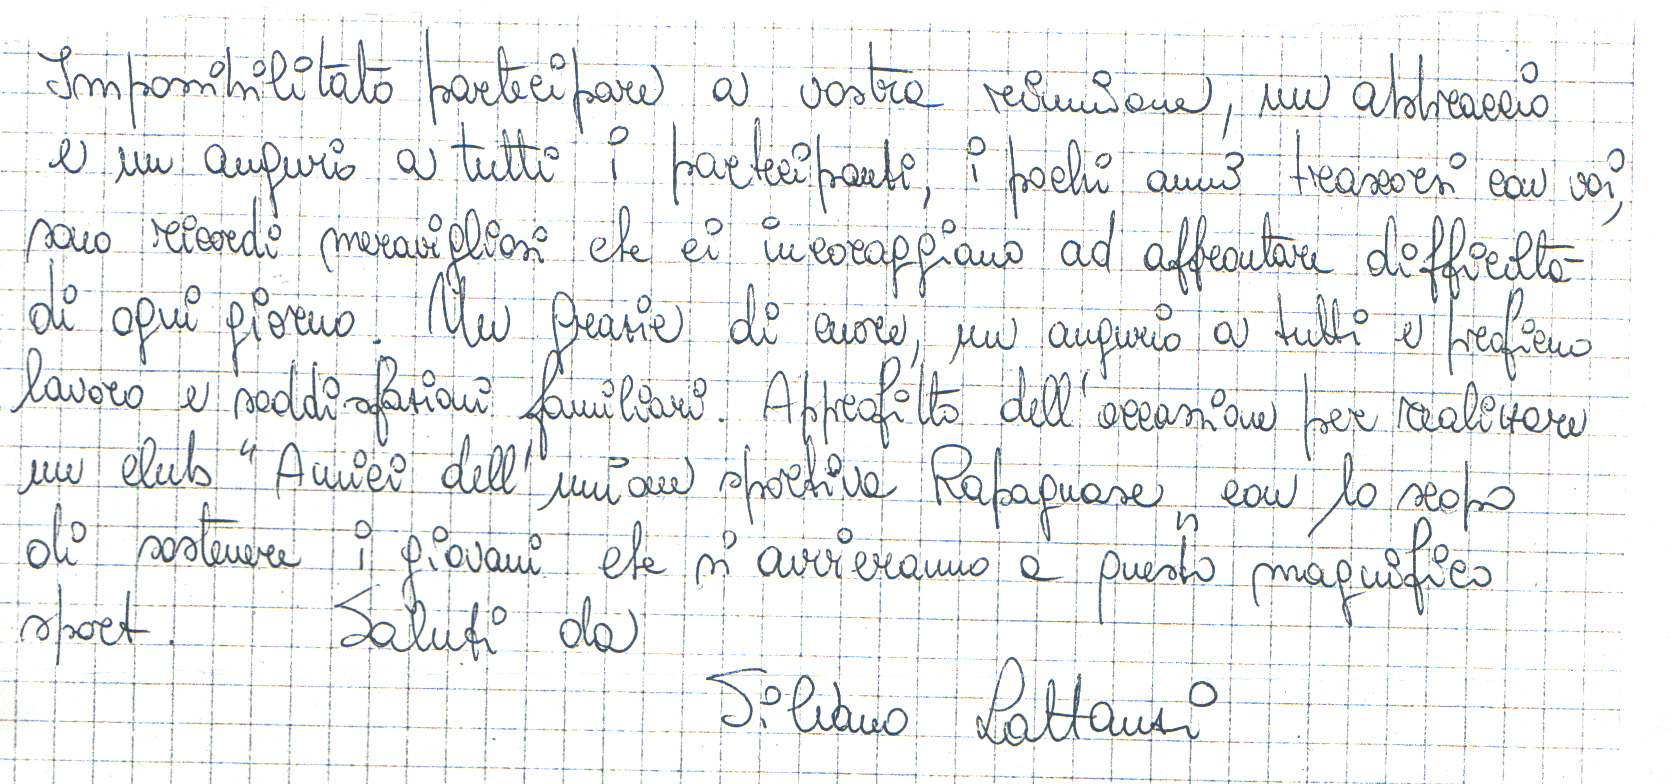 Impossibilitato partecipare a vostra reiunione, un abbraccio
e un augurio a tutti i partecipanti, i pochi anni trascorsi con voi,
sono ricordi meravigliosi che ci incoraggiano ad affrontare difficoltà
di ogni giorno. Un grazie di cuore, un augurio a tutti e proficuo
lavoro e soddisfazioni familiari. Approfitto dell'occasione per realizzare
un club "Amici dell'unione sportiva Rapagnese" con lo scopo
di sostenere i giovani che si avvieranno a questo magnifico
sport. Saluti da
Silvano Lattanzi